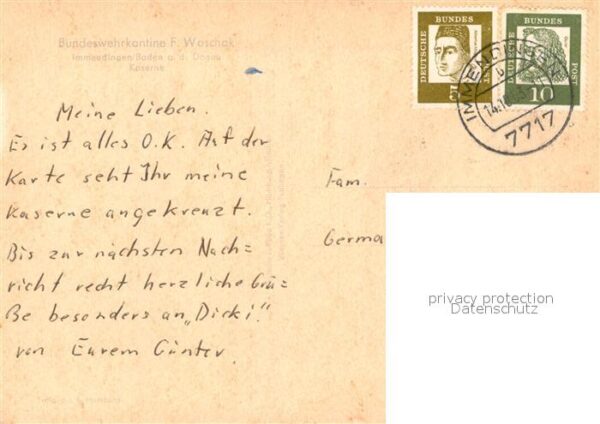 Bundeswehrkantine F. Waschak
Immendingen/Baden a. d. Donau
Kaserne
Meine Lieben.
Es ist alles O.K. Auf der
Karte seht Ihr meine
Kaserne angekreuzt.
Bis zur nächsten Nach=
richt recht herzliche Grü=
ße besonders an „Dicki“.
von Eurem Günter.
Fam.
Germa
DEUTSCHE
BUNDES
POST
5
DEUTSCHE
BUNDES
POST
10
IMMENDINGEN
7717
privacy protection
Datenschutz